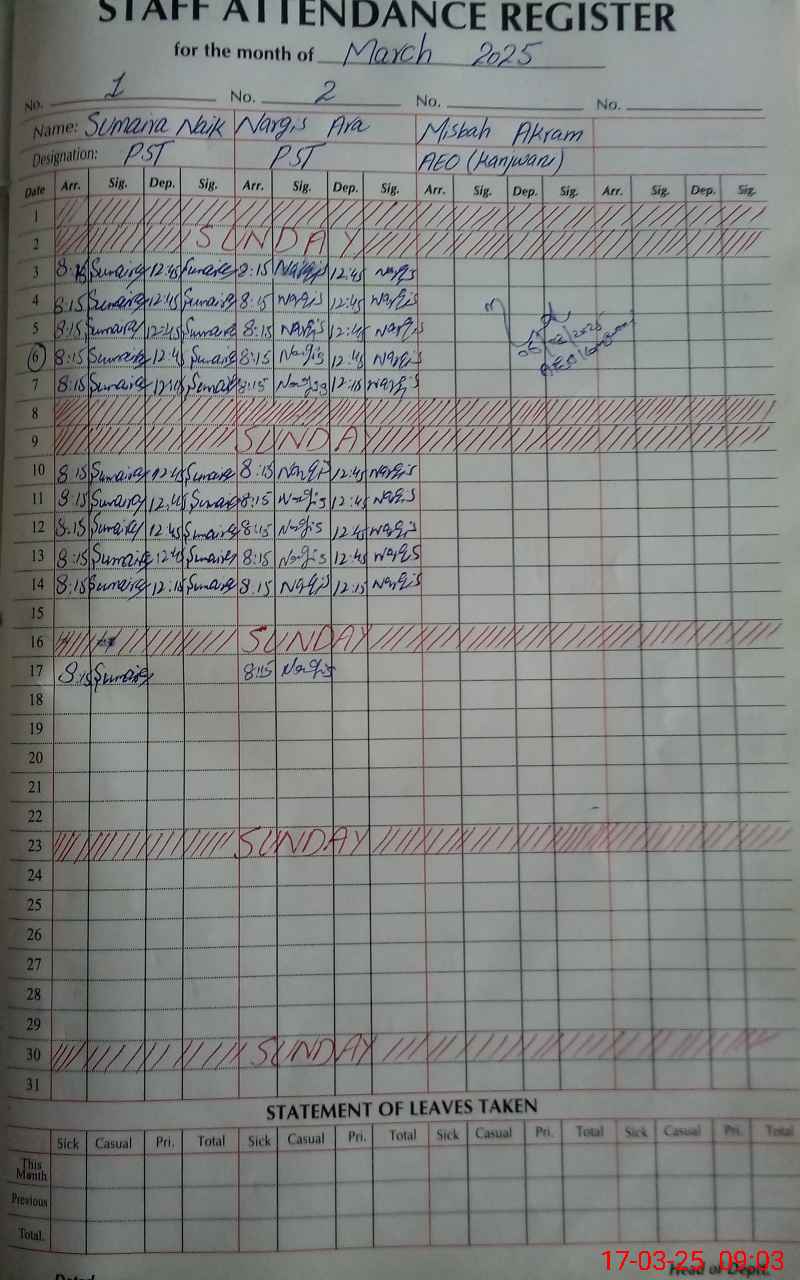 STAFF ATTENDANCE REGISTER
for the month of March 2025
No. 1 No. 2 No. No.
Name: Sumaira Naik Nargis Ara Misbah Akram
Designation: PST PST AEO (Kanjwani)
Date Arr. Sig. Dep. Sig. Arr. Sig. Dep. Sig. Arr. Sig. Dep. Sig. Arr. Sig. Dep. Sig.
1
2 SUNDAY
3 8:15 Sumaira 12:45 Sumaira 8:15 Nargis 12:45 Nargis
4 8:15 Sumaira 12:45 Sumaira 8:15 Nargis 12:45 Nargis
5 8:15 Sumaira 12:45 Sumaira 8:15 Nargis 12:45 Nargis
6 8:15 Sumaira 12:4 Sumaira 8:15 Nargis 12:45 Nargis
7 8:15 Sumaira 12:15 Sumaira 8:15 Nargis 12:15 Nargis
8
9 SUNDAY
10 8:15 Sumaira 12:45 Sumaira 8:15 Nargis 12:45 Nargis
11 8:15 Sumaira 12:45 Sumaira 8:15 Nargis 12:45 Nargis
12 8:15 Sumaira 12:45 Sumaira 8:15 Nargis 12:45 Nargis
13 8:15 Sumaira 12:45 Sumaira 8:15 Nargis 12:45 Nargis
14 8:15 Sumaira 12:15 Sumaira 8:15 Nargis 12:15 Nargis
15
16 SUNDAY
17 8:15 Sumaira 8:15 Nargis
18
19
20
21
22
23 SUNDAY
24
25
26
27
28
29
30 SUNDAY
31
STATEMENT OF LEAVES TAKEN
Sick Casual Pri. Total Sick Casual Pri. Total Sick Casual Pri. Total Sick Casual Pri. Total
This Month
Previous
Total.
Dated Head of Deptt.
17-03-25 09:03